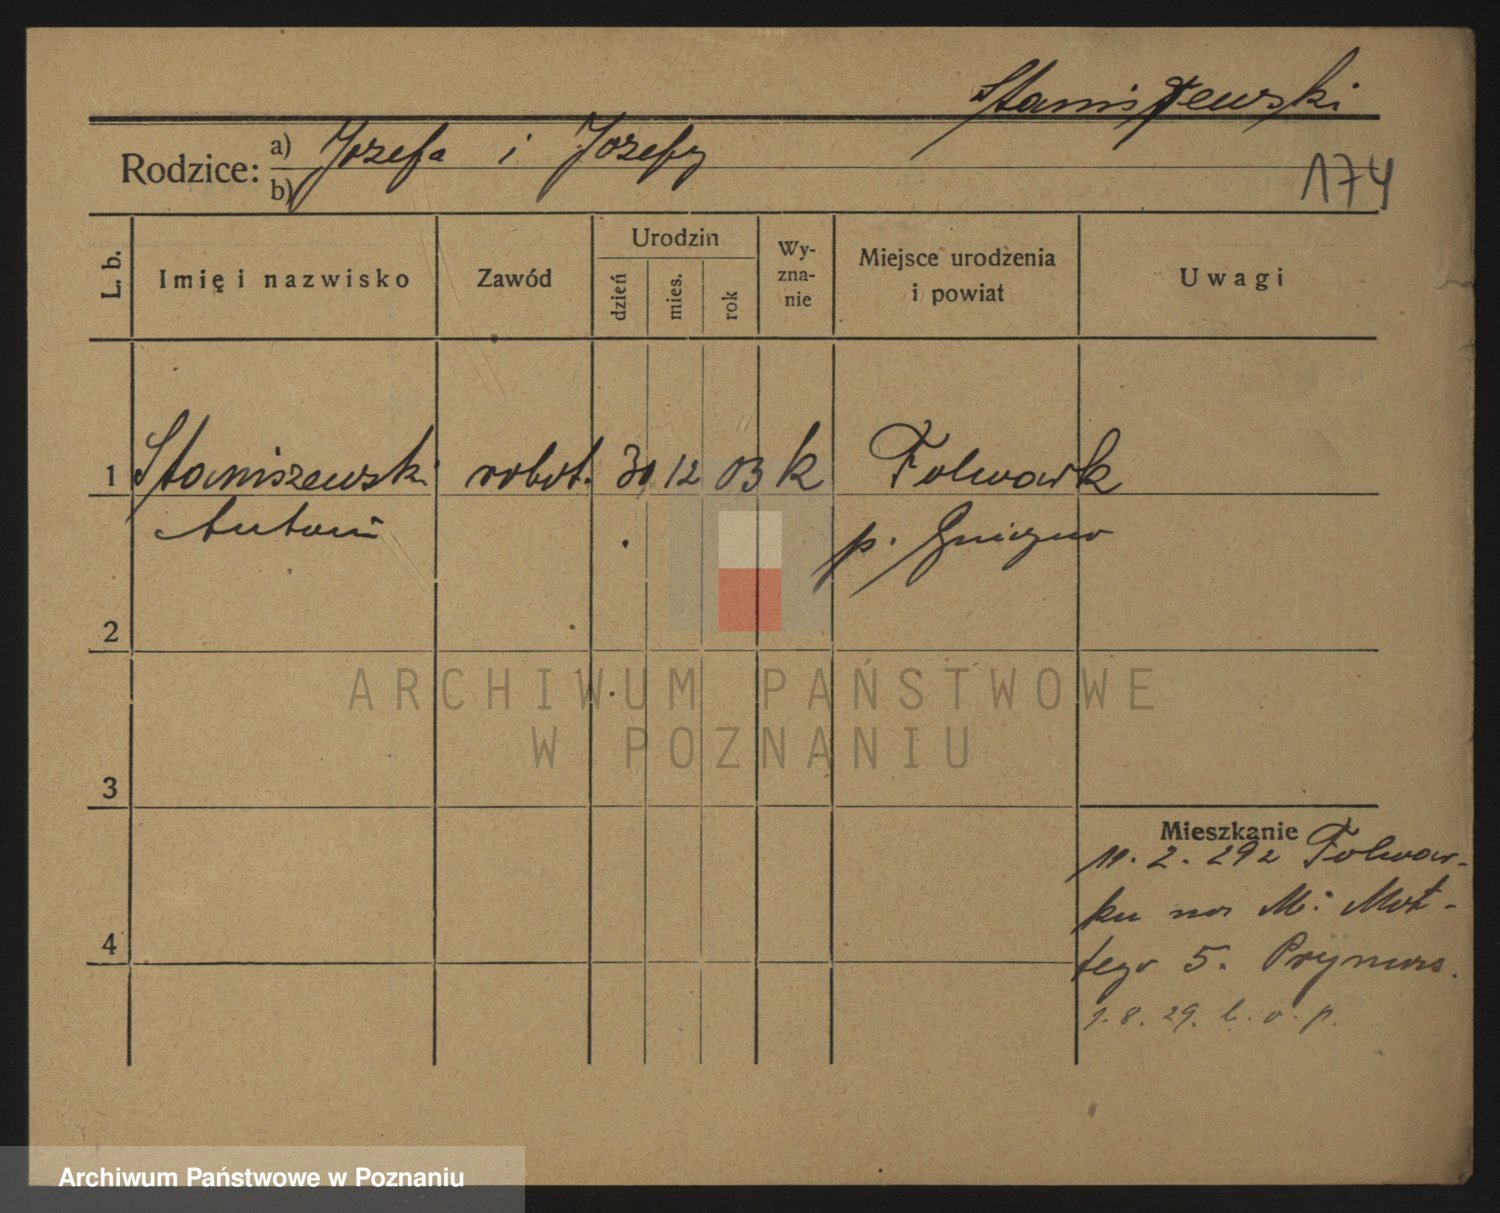 Staniszewski
Rodzice: a) Józefa i Józefy
b)
174
L. b.
Imię i nazwisko
Zawód
Urodzin
dzień
mies.
rok
Wy-
zna-
nie
Miejsce urodzenia
i powiat
Uwagi
1 Staniszewski robot. 30 12 03 k Folwark
Antoni p. Gniezno
2
ARCHIWUM PAŃSTWOWE
W POZNANIU
3
Mieszkanie
11. 2. 29 z Folwar-
ku
4
tego 5.
1. 8. 29. b. o. p.
Archiwum Państwowe w Poznaniu